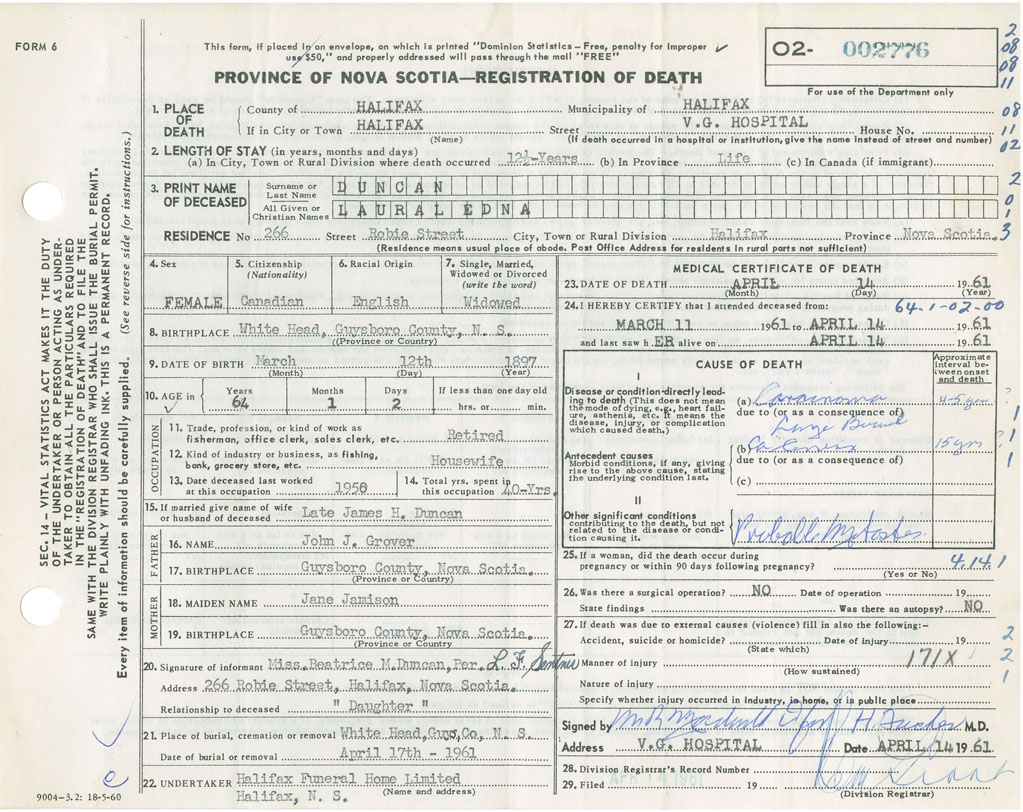 FORM 6
This form, if placed in an envelope, on which is printed "Dominion Statistics – Free, penalty for improper
use $50," and properly addressed will pass through the mail "FREE"
02- 002776
For use of the Department only
PROVINCE OF NOVA SCOTIA—REGISTRATION OF DEATH
SEC. 14 – VITAL STATISTICS ACT MAKES IT THE DUTY
OF THE UNDERTAKER OR PERSON ACTING AS UNDER-
TAKER TO OBTAIN ALL THE PARTICULARS REQUIRED
IN THE "REGISTRATION OF DEATH" AND TO FILE THE
SAME WITH THE DIVISION REGISTRAR WHO SHALL ISSUE THE BURIAL PERMIT.
WRITE PLAINLY WITH UNFADING INK. THIS IS A PERMANENT RECORD.
Every item of information should be carefully supplied. (See reverse side for instructions.)
1. PLACE OF DEATH County of HALIFAX Municipality of HALIFAX
If in City or Town HALIFAX (Name) Street V.G. HOSPITAL House No.
(If death occurred in a hospital or institution, give the name instead of street and number)
2. LENGTH OF STAY (in years, months and days)
(a) In City, Town or Rural Division where death occurred 12½-Years (b) In Province Life (c) In Canada (if immigrant)
3. PRINT NAME OF DECEASED Surname or Last Name DUNCAN
All Given or Christian Names LAURAL EDNA
RESIDENCE No 266 Street Robie Street City, Town or Rural Division Halifax Province Nova Scotia.
(Residence means usual place of abode. Post Office Address for residents in rural parts not sufficient)
4. Sex FEMALE
5. Citizenship (Nationality) Canadian
6. Racial Origin English
7. Single, Married, Widowed or Divorced (write the word) Widowed
8. BIRTHPLACE White Head, Guysboro County, N. S.
(Province or Country)
9. DATE OF BIRTH March 12th 1897
(Month) (Day) (Year)
10. AGE in Years 64 Months 1 Days 2 If less than one day old hrs. or min.
OCCUPATION
11. Trade, profession, or kind of work as
fisherman, office clerk, sales clerk, etc. Retired
12. Kind of industry or business, as fishing,
bank, grocery store, etc. Housewife
13. Date deceased last worked at this occupation 1958
14. Total yrs. spent in this occupation 40-Yrs.
15. If married give name of wife
or husband of deceased Late James H. Duncan
FATHER
16. NAME John J. Grover
17. BIRTHPLACE Guysboro County, Nova Scotia.
(Province or Country)
MOTHER
18. MAIDEN NAME Jane Jamison
19. BIRTHPLACE Guysboro County, Nova Scotia.
(Province or Country)
20. Signature of informant Miss. Beatrice M. Duncan, Per. L. F.
Address 266 Robie Street, Halifax, Nova Scotia.
Relationship to deceased " Daughter "
21. Place of burial, cremation or removal White Head, Guys, Co, N. S.
Date of burial or removal April 17th - 1961
22. UNDERTAKER Halifax Funeral Home Limited
Halifax, N. S. (Name and address)
9004-3.2: 18-5-60
MEDICAL CERTIFICATE OF DEATH
23. DATE OF DEATH APRIL 14 1961
(Month) (Day) (Year)
24. I HEREBY CERTIFY that I attended deceased from: 64-1-02-00
MARCH 11 1961 to APRIL 14 1961
and last saw h ER alive on APRIL 14 1961
CAUSE OF DEATH
Approximate interval between onset and death
I
Disease or condition directly leading to death (This does not mean the mode of dying, e.g., heart failure, asthenia, etc. It means the disease, injury, or complication which caused death.)
(a) Carcinoma 4-5 yrs
due to (or as a consequence of)
Large Bowel
(b) 15 yrs
due to (or as a consequence of)
(c)
Antecedent causes
Morbid conditions, if any, giving rise to the above cause, stating the underlying condition last.
II
Other significant conditions
contributing to the death, but not related to the disease or condition causing it.
25. If a woman, did the death occur during
pregnancy or within 90 days following pregnancy? 4.14.1
(Yes or No)
26. Was there a surgical operation? NO Date of operation 19
State findings Was there an autopsy? NO
27. If death was due to external causes (violence) fill in also the following:-
Accident, suicide or homicide? Date of injury 19
(State which)
171X
Manner of injury
(How sustained)
Nature of injury
Specify whether injury occurred in industry, in home, or in public place
Signed by M.D.
Address V.G. HOSPITAL Date APRIL 14 1961
28. Division Registrar's Record Number
29. Filed APR 14 1961 19
(Division Registrar)